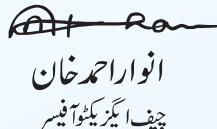 انوار احمد خان
چیف ایگزیکٹو آفیسر